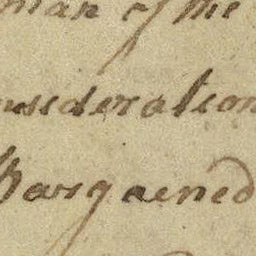 man of the
nsideration
Bargaened